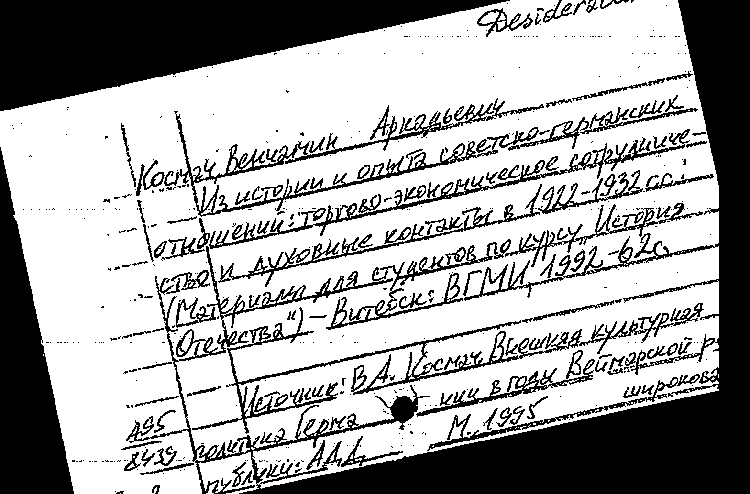 Desiderata
Космач, Вениамин Аркадьевич
Из истории и опыта советско-германских
отношений: торгово-экономическое сотрудниче-
ство и духовные контакты в 1922-1932 гг.:
(Материалы для студентов по курсу „История
Отечества") – Витебск: ВГМИ, 1992.-62с.
Источник: В.А. Космач Внешняя культурная
495 политика Герма нии в годы Веймарской р
8439 публики: А.Д.Д. М., 1995 широкова